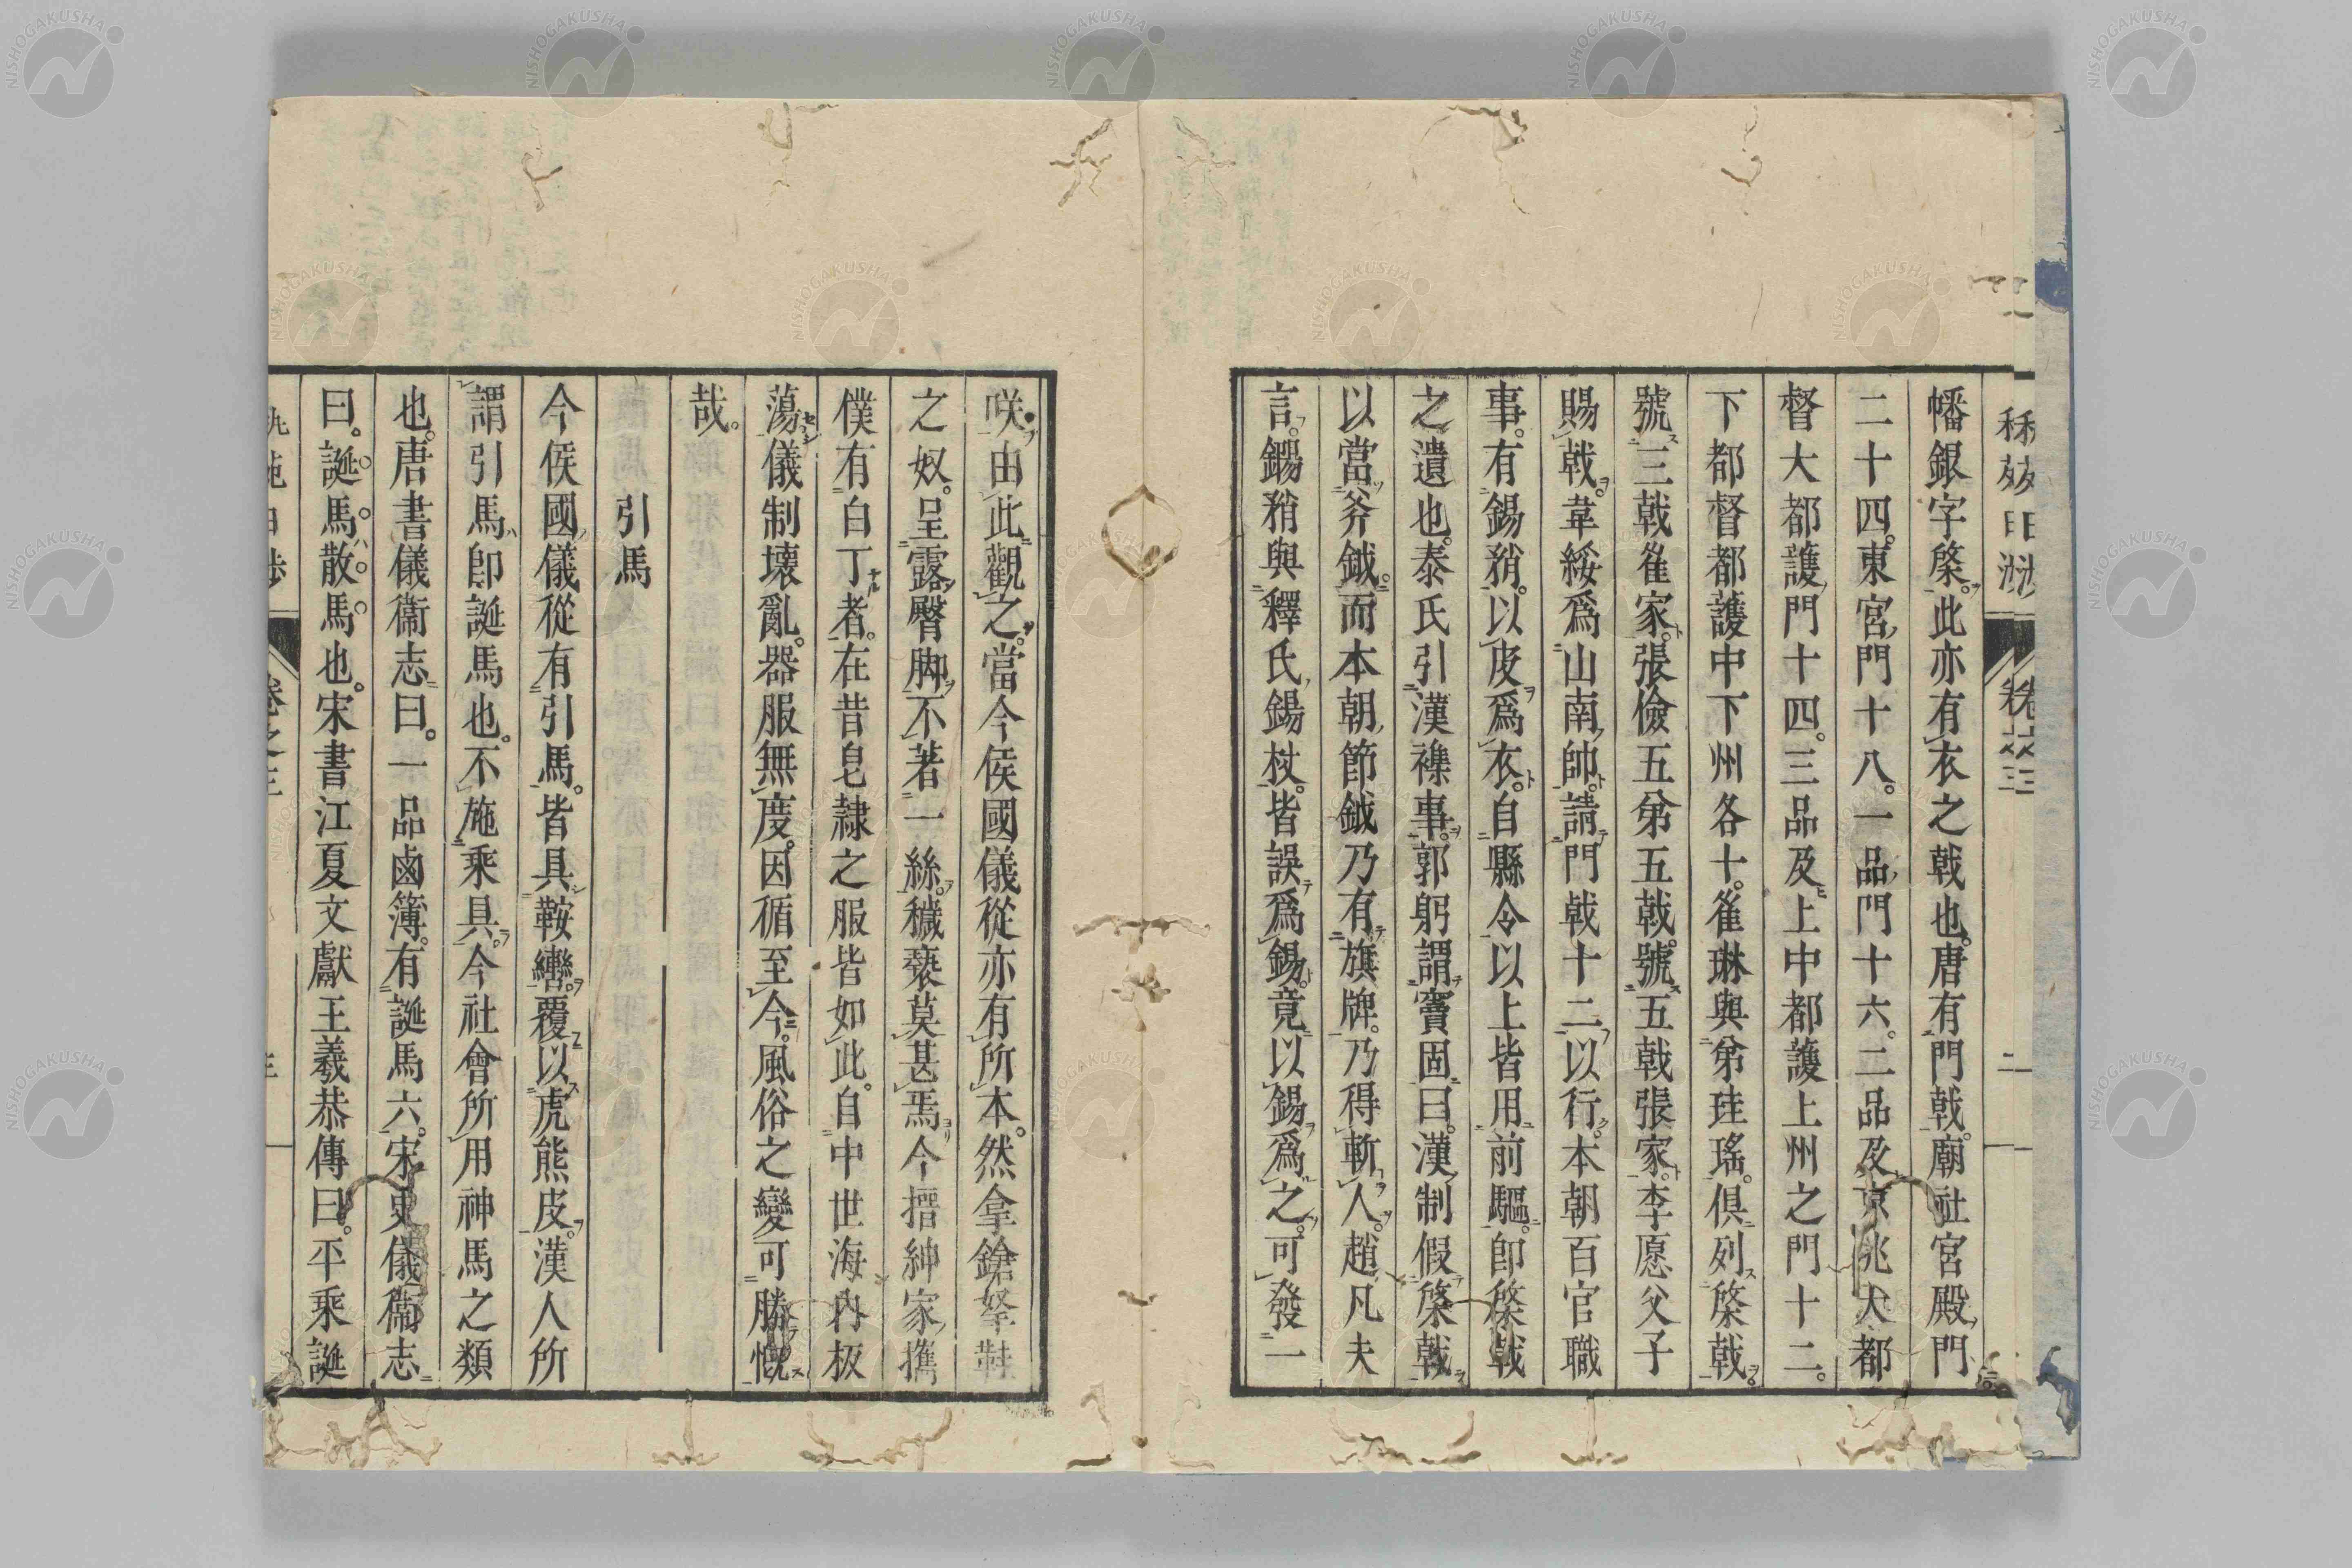 幡銀字棨。此亦有衣之戟也。唐有門戟。廟社宮殿門
二十四。東宮門十八。一品門十六。二品及京兆大都
督大都護門十四。三品及上中都護上州之門十二。
下都督都護中下州各十。崔琳與弟珪瑤。俱列棨戟。
號三戟崔家。張儉五弟五戟。號五戟張家。李愿父子
賜戟。韋綬爲山南帥。請門戟十二以行。本朝百官職
事。有錫矟。以皮爲衣。自縣令以上皆用前驅。卽棨戟
之遺也。秦氏引漢襍事。郭躬謂竇固曰。漢制假棨戟
以當斧鉞。而本朝節鉞乃有旗牌。乃得斬人。趙凡夫
言。鍚矟與釋氏錫杖。皆誤爲錫。竟以錫爲之。可發一
咲。由此觀之。當今侯國儀從亦有所本。然拿鎗拏鞋
之奴。呈露臀脚。不著一絲。穢褻莫甚焉。今搢紳家携
僕有白丁者。在昔皂隷之服皆如此。自中世海內板
蕩。儀制壊亂。器服無度。因循至今。風俗之變可勝慨
哉。
引馬
今侯國儀從有引馬。皆具鞍轡。覆以虎熊皮。漢人所
謂引馬。卽誕馬也。不施乘具。今社會所用神馬之類
也。唐書儀衞志曰。一品鹵簿。有誕馬六。宋史儀衞志
曰。誕馬散馬也。宋書江夏文獻王義恭傳曰。平乘誕